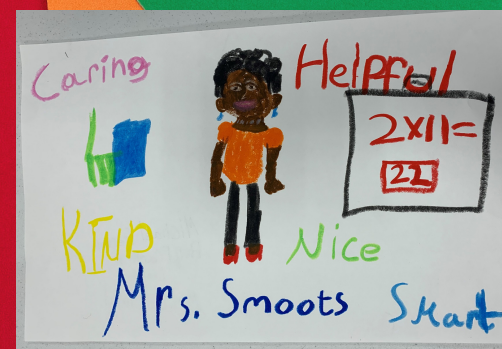 Caring
Helpful
2x11=
22
KIND
Nice
Mrs. Smoots
Smart